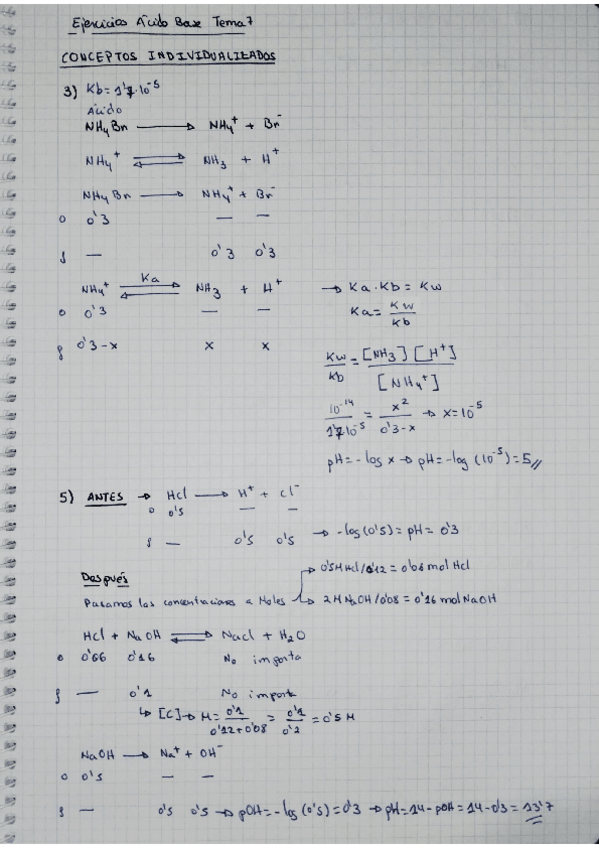 Ejercicios Ácido Base Tema 7
CONCEPTOS INDIVIDUALIZADOS
3) Kb = 1'7·10⁻⁵
Ácido
NH₄Br ⟶ NH₄⁺ + Br⁻
NH₄⁺ ⇌ NH₃ + H⁺
NH₄Br ⟶ NH₄⁺ + Br⁻
0 0'3 — —
f — 0'3 0'3
NH₄⁺ ⇌ Ka NH₃ + H⁺
0 0'3 — —
f 0'3-x x x
→ Ka·Kb = Kw
Ka = Kw/Kb
Kw/Kb = [NH₃][H⁺]/[NH₄⁺]
10⁻¹⁴/1'7·10⁻⁵ = x²/0'3-x → x=10⁻⁵
pH = -log x → pH = -log (10⁻⁵) = 5//
5) ANTES → Hcl ⟶ H⁺ + Cl⁻
0 0's — —
f — 0's 0's → -log(0's) = pH = 0'3
Después
Pasamos las concentraciones a Moles → 0'5M Hcl/0'12 = 0'06 mol Hcl
→ 2 M NaOH/0'08 = 0'16 mol NaOH
Hcl + NaOH ⇌ Nacl + H₂O
0 0'06 0'16 No importa
f — 0'1 No importa
↳ [C] → M = 0'1/0'12+0'08 = 0'1/0'2 = 0'5 M
NaOH ⟶ Na⁺ + OH⁻
0 0's — —
f — 0's 0's → pOH = -log (0's) = 0'3 → pH = 14 - pOH = 14 - 0'3 = 13'7